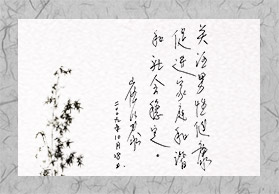 关注男性健康
促进家庭和谐
和社会稳定。
二〇〇九年10月18日